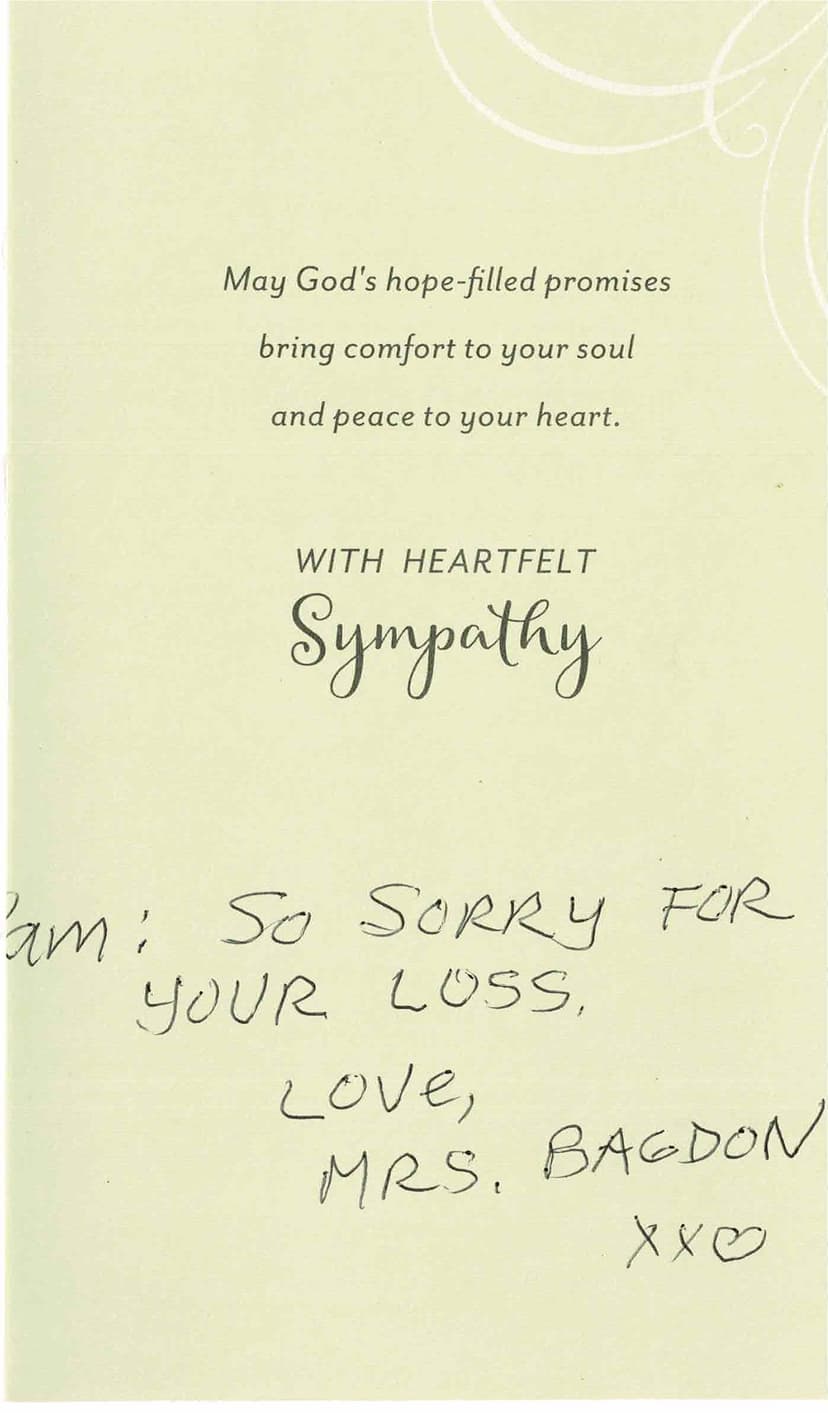 May God's hope-filled promises
bring comfort to your soul
and peace to your heart.
WITH HEARTFELT
Sympathy
am: SO SORRY FOR
YOUR LOSS.
LOVe,
MRS. BAGDON
XX♡